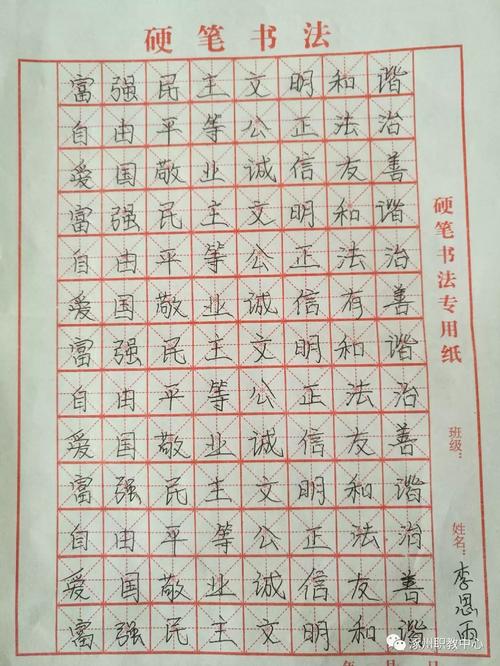 硬笔书法
富强民主文明和谐
自由平等公正法治
爱国敬业诚信友善
富强民主文明和谐
自由平等公正法治
爱国敬业诚信有善
富强民主文明和谐
自由平等公正法治
爱国敬业诚信友善
富强民主文明和谐
自由平等公正法治
爱国敬业诚信友善
富强民主文明和谐
硬笔书法专用纸
班级：
姓名：李思雨
年 月
涿州职教中心